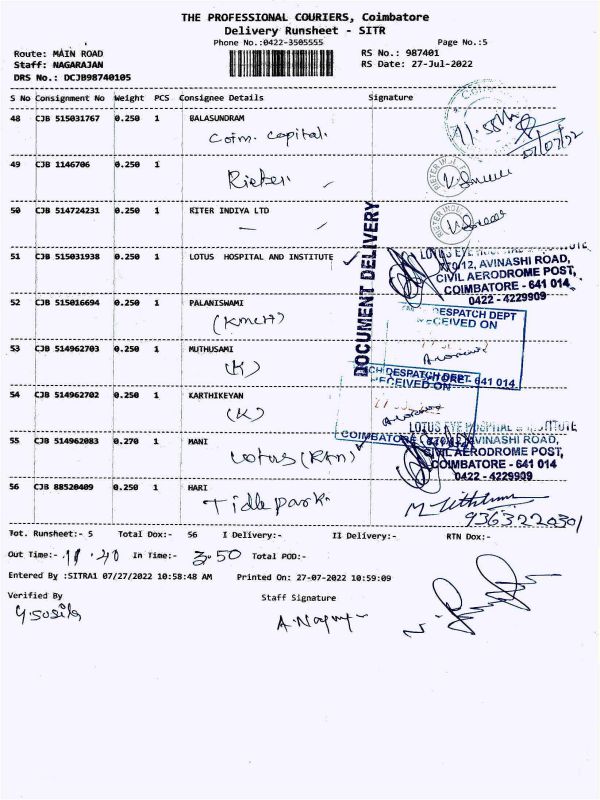 THE PROFESSIONAL COURIERS, Coimbatore
Delivery Runsheet - SITR
Phone No.:0422-3505555 Page No.:5
Route: MAIN ROAD RS No.: 987401
Staff: NAGARAJAN RS Date: 27-Jul-2022
DRS No.: DCJB98740105
S No Consignment No Weight PCS Consignee Details Signature
48 CJB 515031767 0.250 1 BALASUNDRAM
Coim. Capital. 11.55
49 CJB 1146706 0.250 1
Rieter. RIETER
50 CJB 514724231 0.250 1 RITER INDIYA LTD RIETER
DOCUMENT DELIVERY
51 CJB 515031938 0.250 1 LOTUS HOSPITAL AND INSTITUTE LOTUS EYE HOSPITAL & INSTITUTE
770/12, AVINASHI ROAD,
CIVIL AERODROME POST,
COIMBATORE - 641 014
0422 - 4229909
52 CJB 515016694 0.250 1 PALANISWAMI
(KMCH) DESPATCH DEPT
RECEIVED ON
53 CJB 514962703 0.250 1 MUTHUSAMI
(K) DESPATCH DEPT
RECEIVED ON - 641 014
54 CJB 514962702 0.250 1 KARTHIKEYAN
(K) 27
COIMBATORE
LOTUS EYE HOSPITAL & INSTITUTE
55 CJB 514962083 0.270 1 MANI 770/12, AVINASHI ROAD,
Lotus CIVIL AERODROME POST,
COIMBATORE - 641 014
0422 - 4229909
56 CJB 88520409 0.250 1 HARI
Tidle park. 9363220301
Tot. Runsheet:- 5 Total Dox:- 56 I Delivery:- II Delivery:- RTN Dox:-
Out Time:- 11.40 In Time:- 3.50 Total POD:-
Entered By :SITRA1 07/27/2022 10:58:48 AM Printed On: 27-07-2022 10:59:09
Verified By Staff Signature